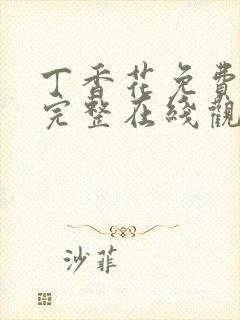 丁香花免費
完整在綫觀
沙菲